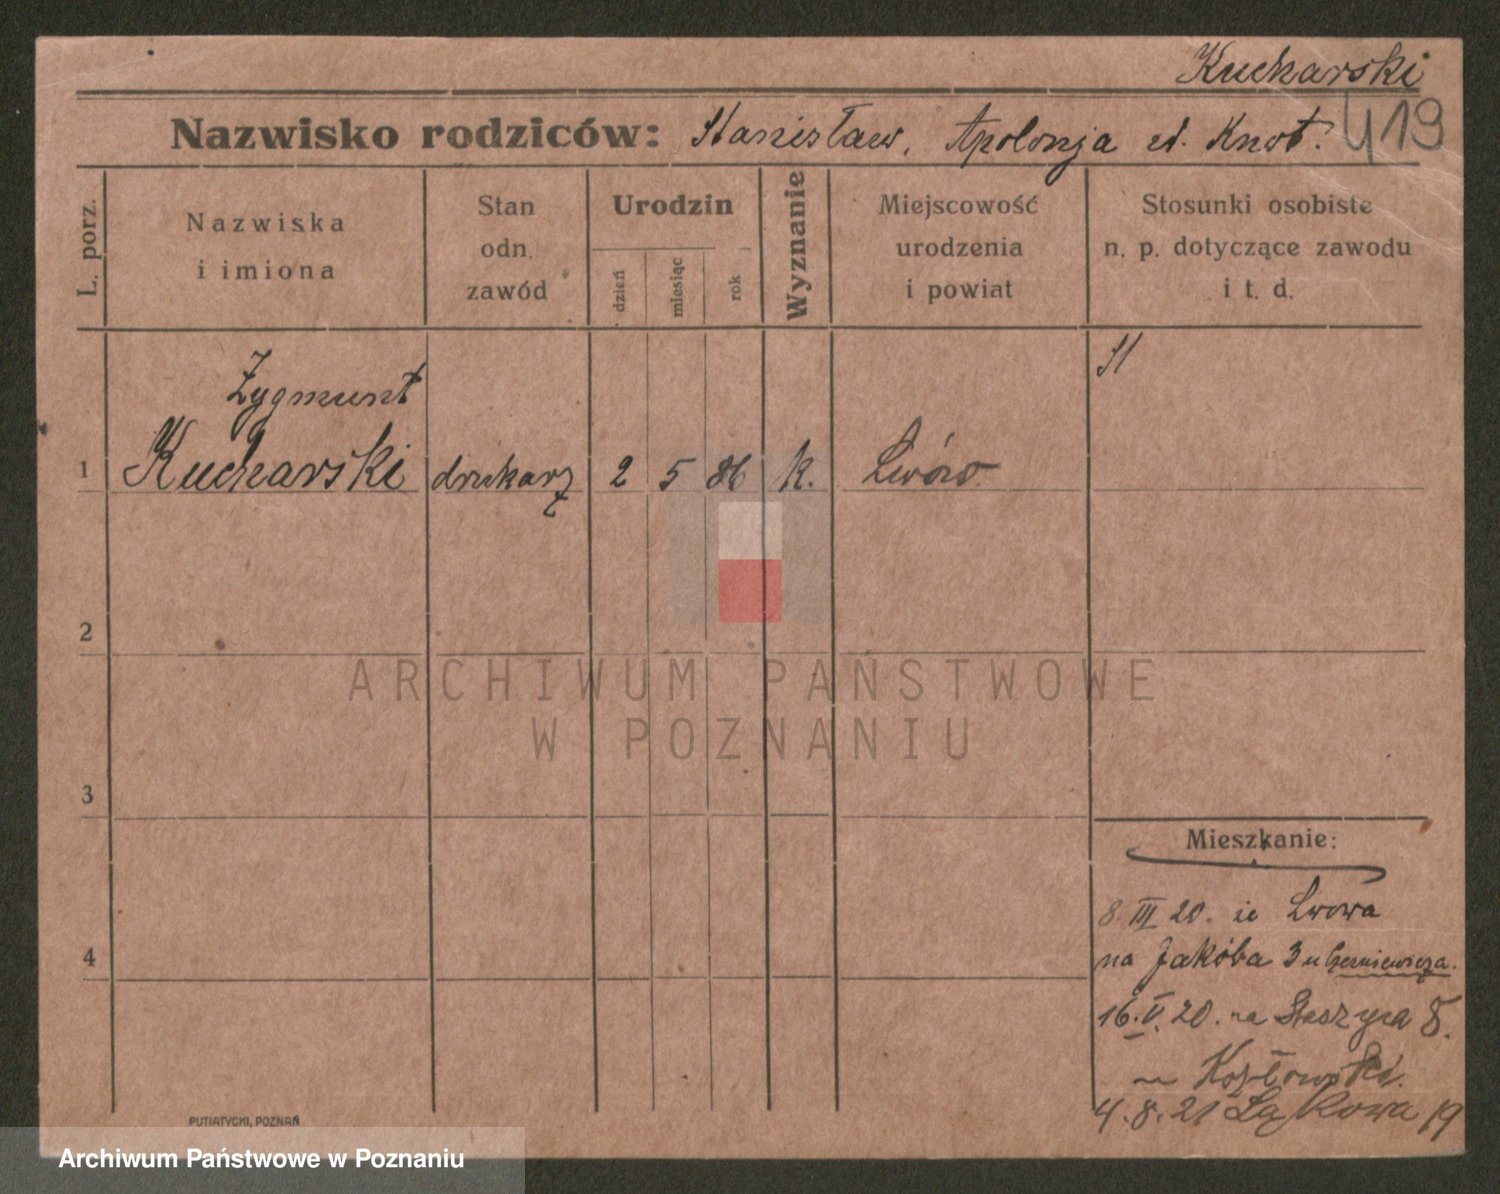 Kucharski
419
Nazwisko rodziców: Stanisław, Apolonja zd. Knot.
L. porz.
Nazwiska
i imiona
Stan
odn.
zawód
Urodzin
dzień
miesiąc
rok
Wyznanie
Miejscowość
urodzenia
i powiat
Stosunki osobiste
n. p. dotyczące zawodu
i t. d.
Zygmunt
1 Kucharski drukarz 2 5 86 k. Lwów
2
3
4
Mieszkanie:
8. III 20. ze Lwowa
na Jakóba 3 u Czerniewicza.
16. V. 20. na Staszyca 8.
Kozłowski.
4.8.21 Łąkowa 19
PUTIATYCKI, POZNAŃ
ARCHIWUM PAŃSTWOWE
W POZNANIU
Archiwum Państwowe w Poznaniu